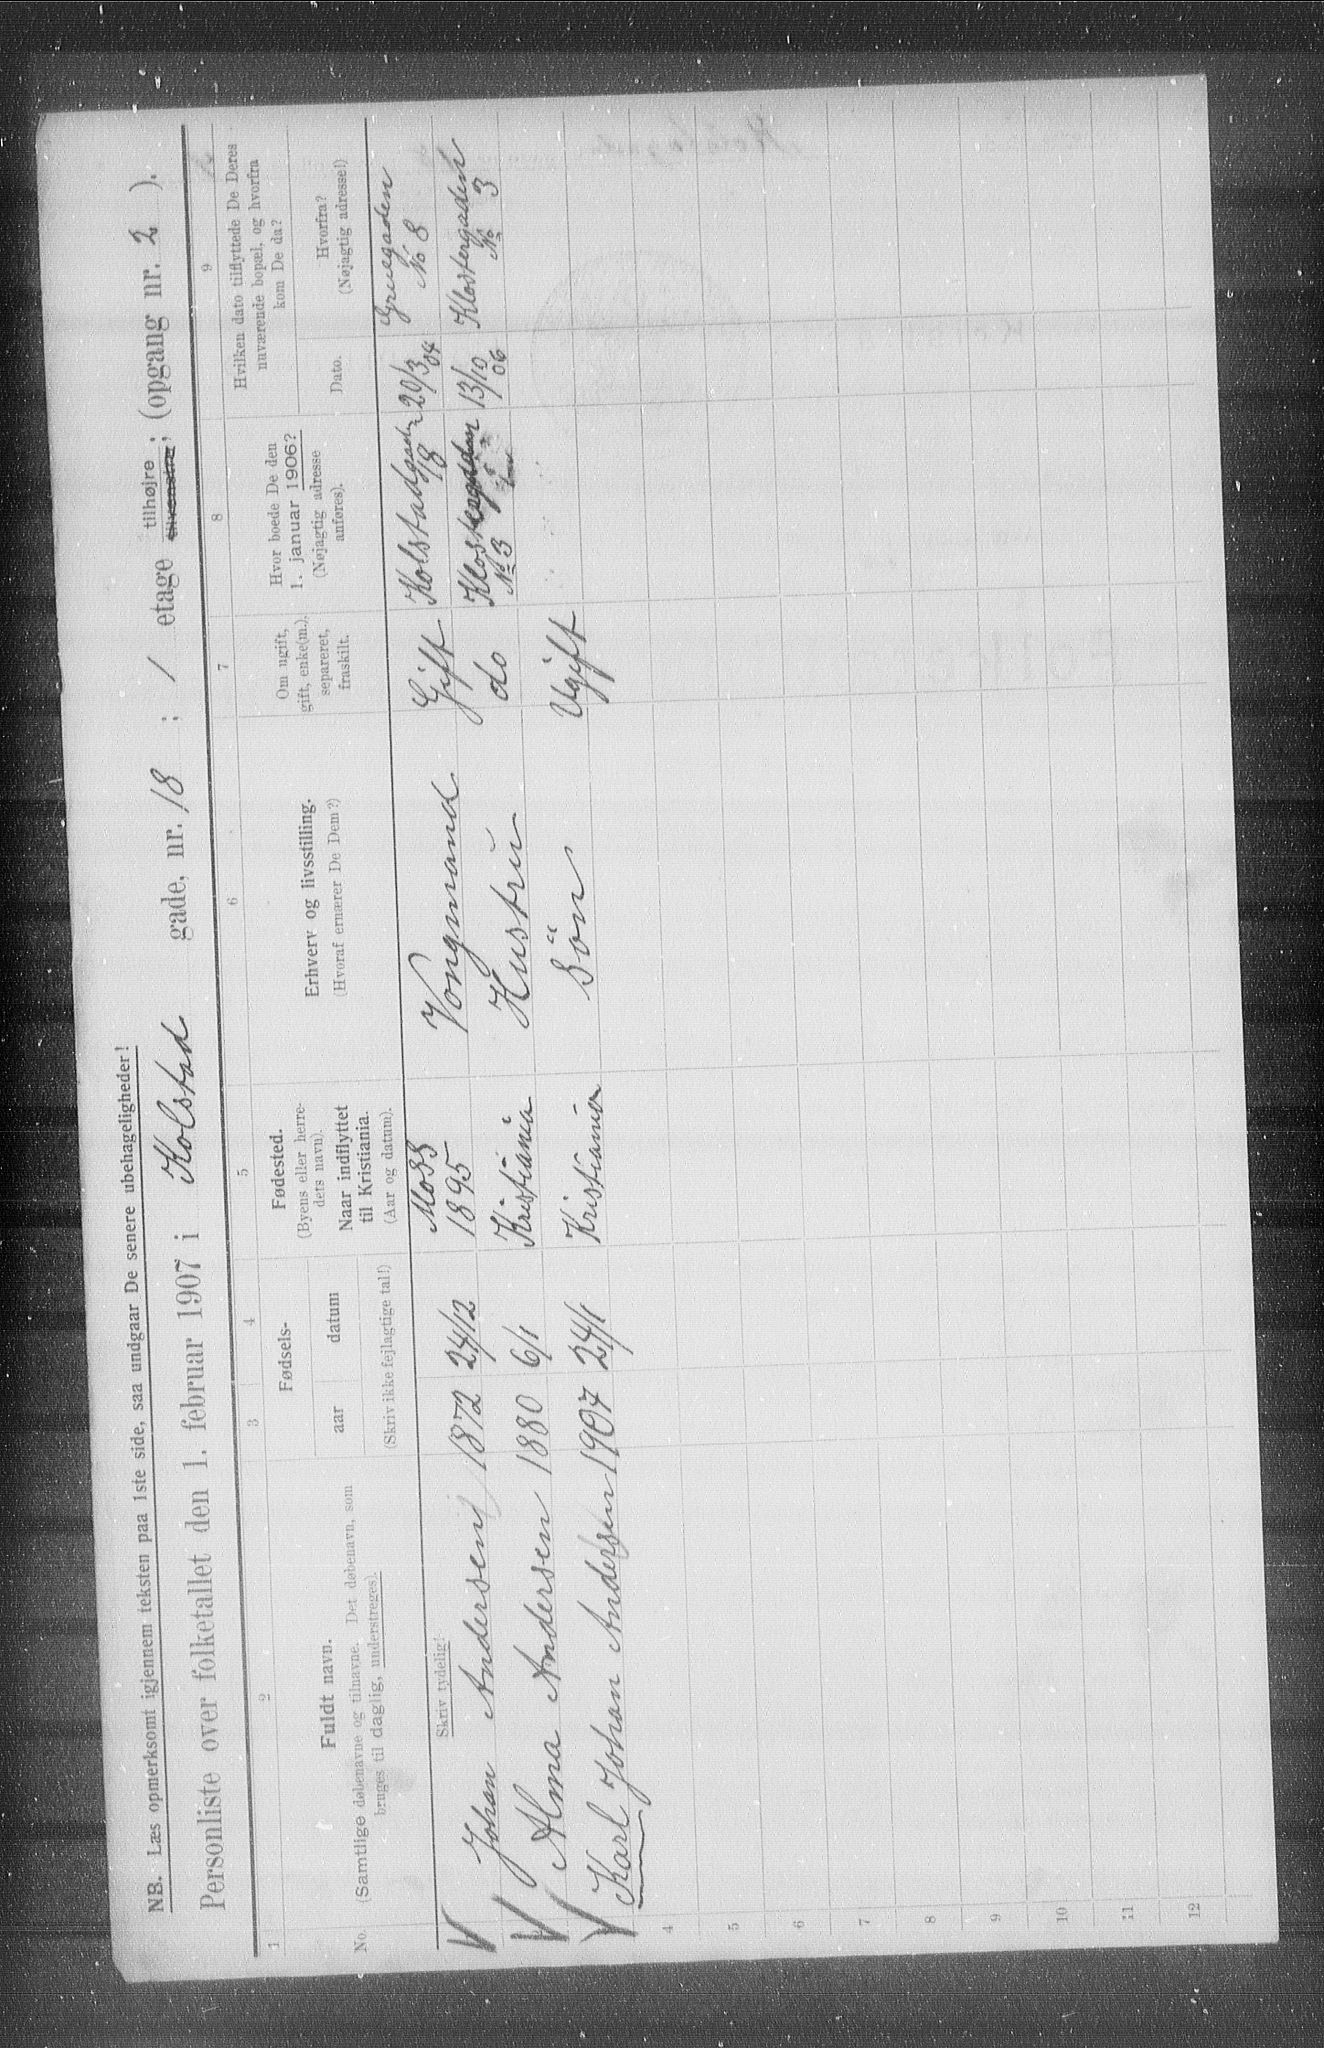 NB. Læs opmerksomt igjennem teksten paa 1ste side, saa undgaar De senere ubehageligheder!
Personliste over folketallet den 1. februar 1907 i Kolstad gade, nr. 18 ; 1 etage tilhøjre ; tilvenstre, (opgang nr. 2 ).
1 2 3 4 5 6 7 8 9
No.
Fuldt navn.
(Samtlige døbenavne og tilnavne. Det døbenavn, som
bruges til daglig, understreges).
Skriv tydelig!
Fødsels-
aar datum
(Skriv ikke fejlagtige tal!)
Fødested.
(Byens eller herre-
dets navn).
Naar indflyttet
til Kristiania.
(Aar og datum).
Erhverv og livsstilling.
(Hvoraf ernærer De Dem?)
Om ugift,
gift, enke(m.),
separeret,
fraskilt.
Hvor boede De den
1. januar 1906?
(Nøjagtig adresse
anføres).
Hvilken dato tilflyttede De Deres
nuværende bopæl, og hvorfra
kom De da?
Dato.
Hvorfra?
(Nøjagtig adresse!)
Johan Andersen 1872 24/12 Moss 1895 Vongmand Gift Kolstadgade 18 20/3 04 Gruegaden No 8
Alma Andersen 1880 6/1 Kristiania Hustru do Klostergaden No 3 13/10 06 Klostergaden No 3
Karl Johan Andersen 1907 24/1 Kristiania Sön Ugift
4
5
6
7
8
9
10
11
12